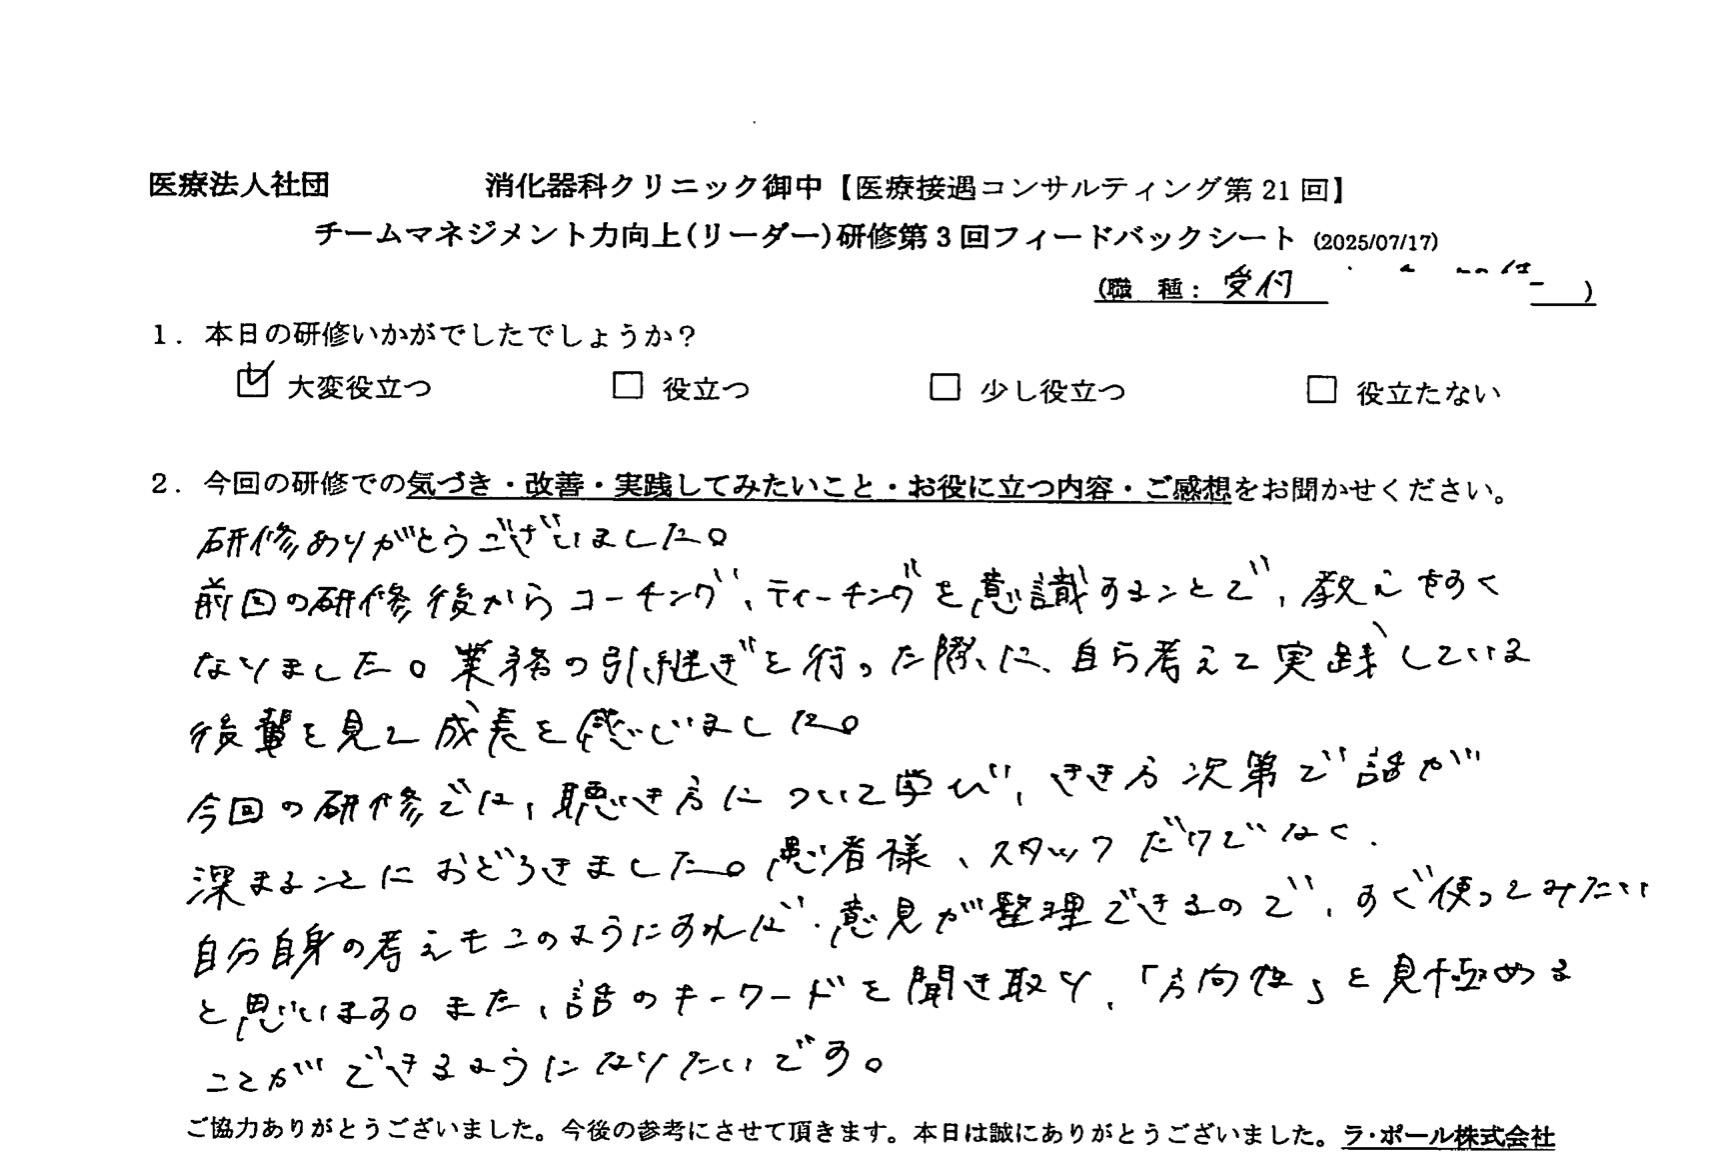 医療法人社団 消化器科クリニック御中【医療接遇コンサルティング第21回】
チームマネジメント力向上(リーダー)研修第3回フィードバックシート (2025/07/17)
(職 種: 受付 )
1. 本日の研修いかがでしたでしょうか?
☑ 大変役立つ □ 役立つ □ 少し役立つ □ 役立たない
2. 今回の研修での気づき・改善・実践してみたいこと・お役に立つ内容・ご感想をお聞かせください。
研修ありがとうございました。
前回の研修後からコーチング、ティーチングを意識することで、教えやすく
なりました。業務の引継ぎを行った際に、自ら考えて実践している
後輩を見て成長を感じました。
今回の研修では、聴き方について学び、きき方次第で話が
深まることにおどろきました。患者様、スタッフだけでなく、
自分自身の考えもこのようにすれば、意見が整理できるので、すぐ使ってみたい
と思います。また、話のキーワードを聞き取り、「方向性」を見極める
ことができるようになりたいです。
ご協力ありがとうございました。今後の参考にさせて頂きます。本日は誠にありがとうございました。ラ・ポール株式会社